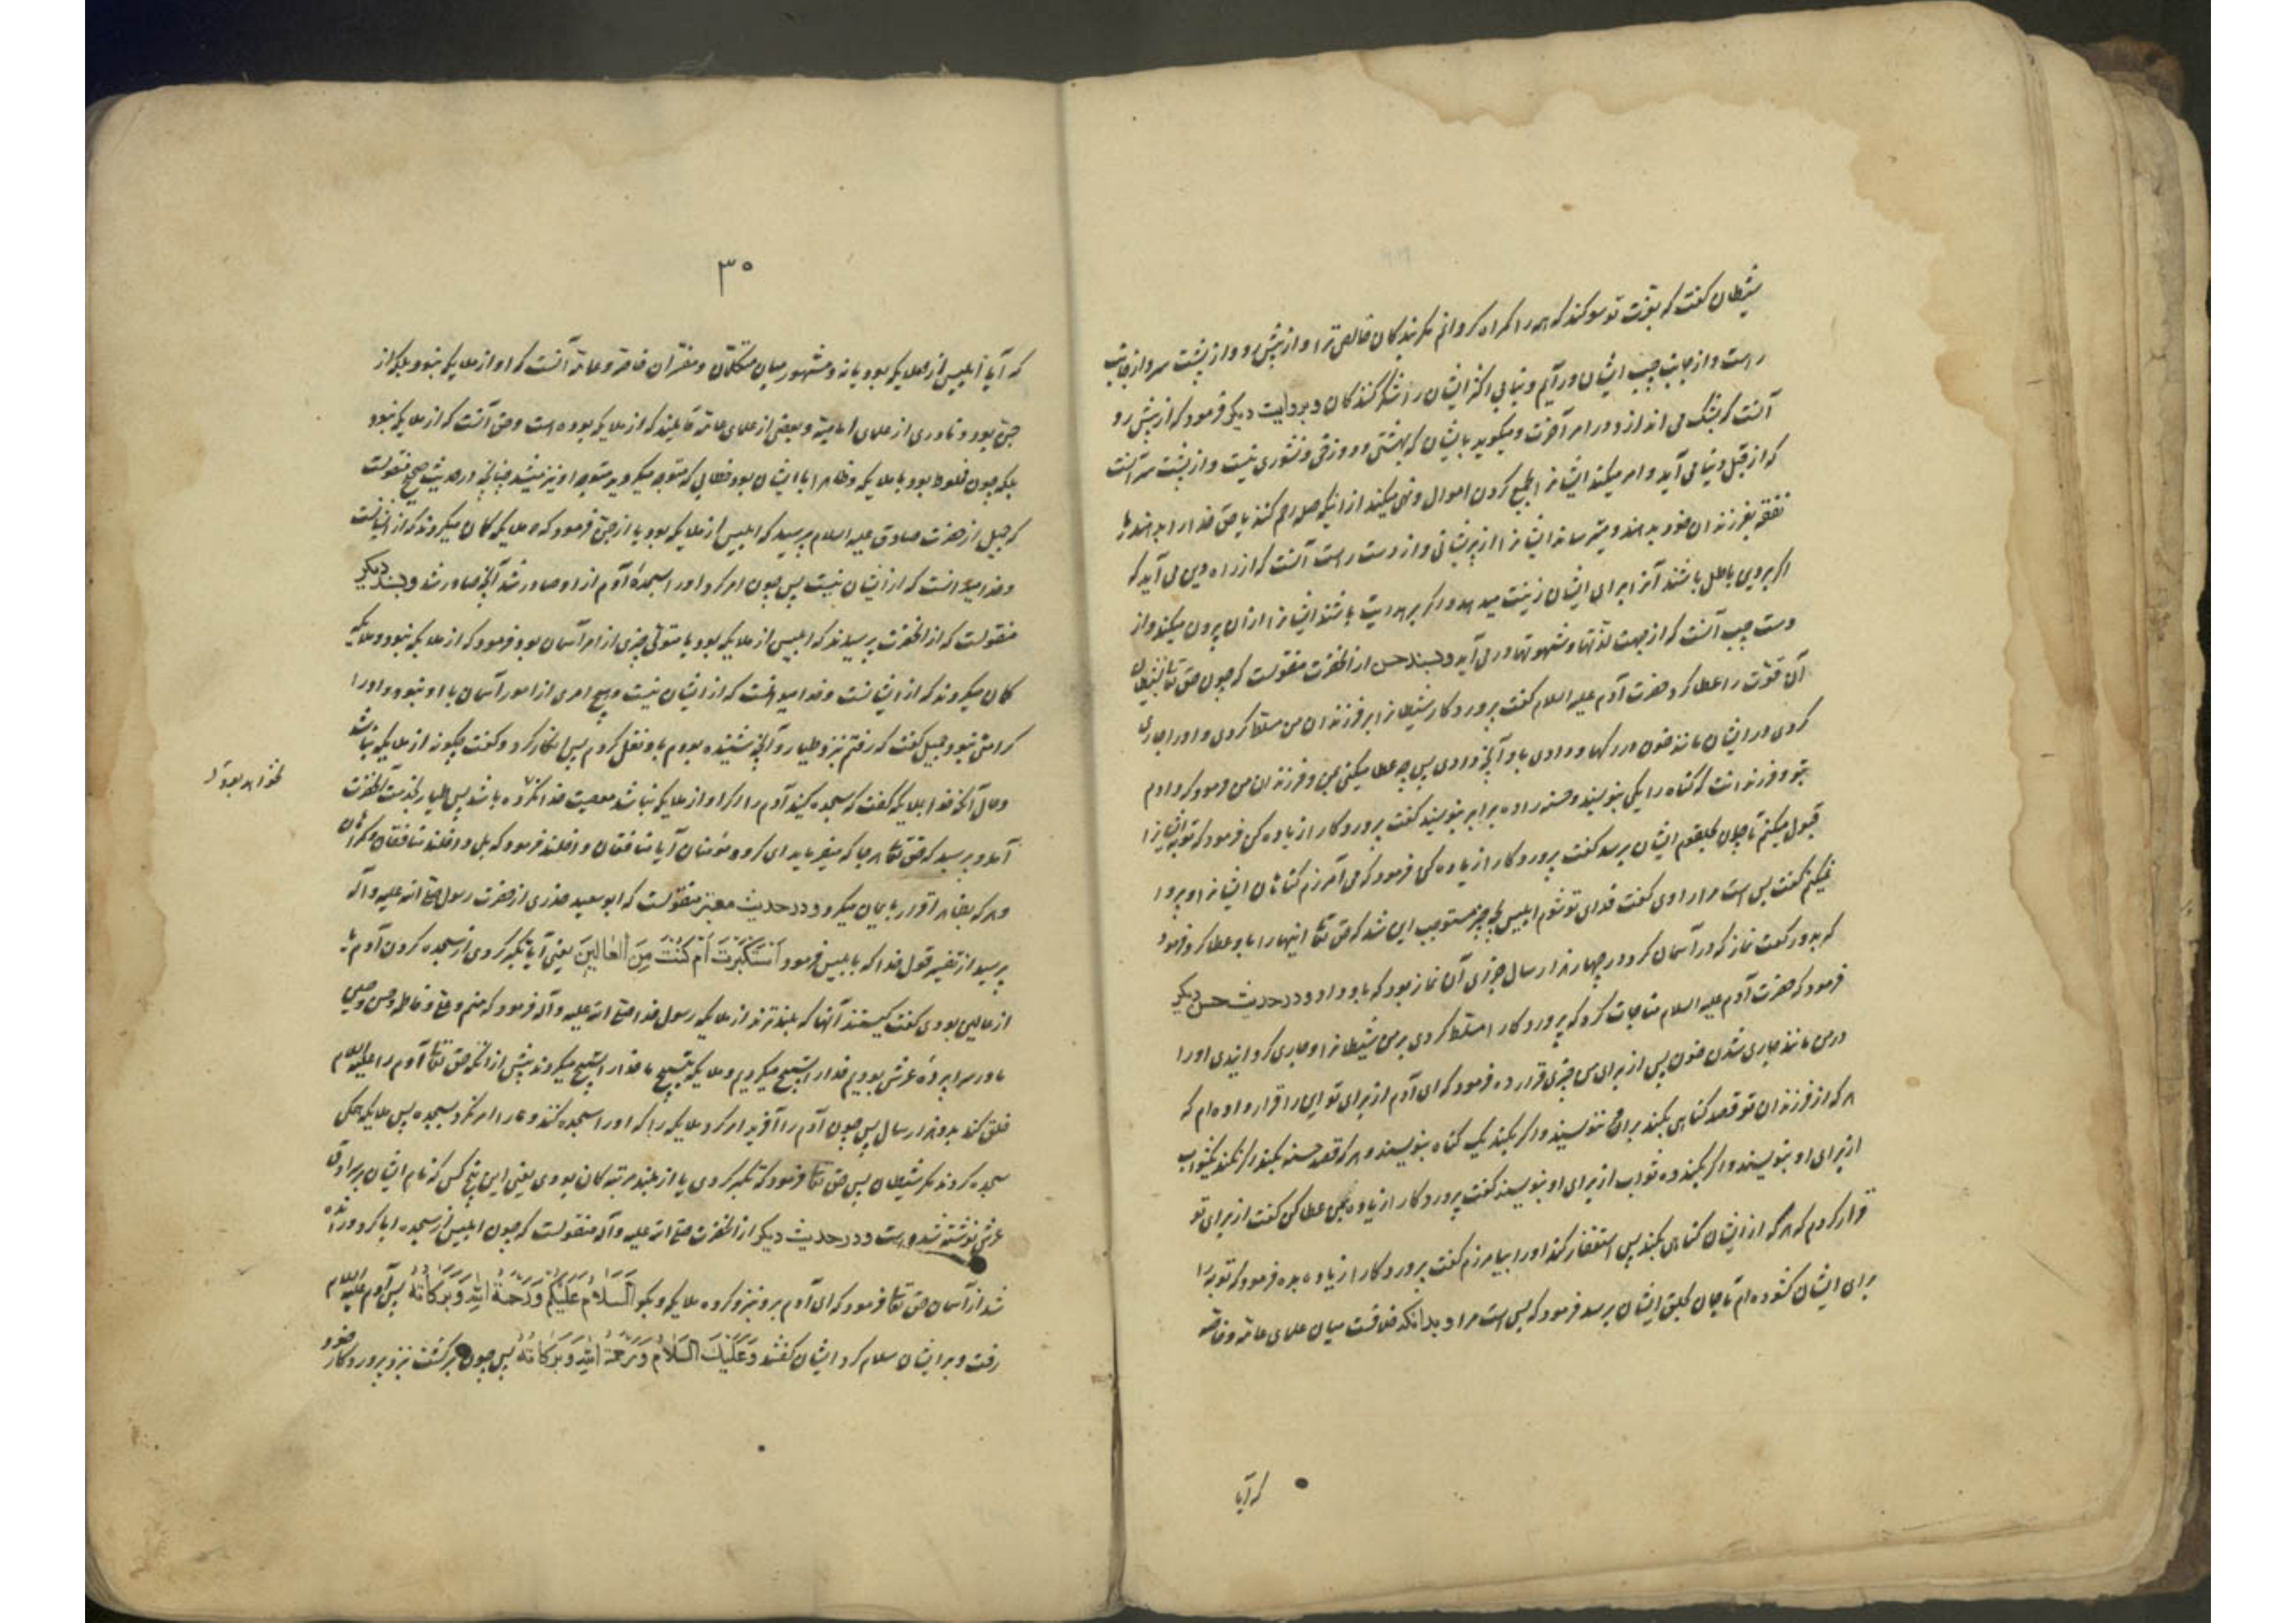 شیطان گفت که بعزت تو سوکند که همه را کمراه کردانم مکر بندکان خالص ترا و از پیش رو و از پشت سر و از جانب
راست و از جانب چپ ایشان درآیم و نیابی اکثر ایشان را شکر کنندکان و بروایت دیکر فرمود که از پیش رو
آنست که بشک می اندازد در امر آخرت و میکوید بایشان که بهشتی و دوزخی و نشوری نیست و از پشت سر آنست
که از قبل دنیا می آید و امر میکند ایشانرا بجمع کردن اموال و نهی میکند از اینکه صله رحم کنند یا حق خدا را بدهند یا
نفقه بفرزندان خود بدهند و میترساند ایشانرا از پریشانی و از دست راست آنست که از راه دین می آید که
اکر بر دین باطل باشند آنرا برای ایشان زینت میدهد و اکر بر هدایت باشند ایشانرا از آن بیرون میکند و از
دست چپ آنست که از جهت لذتها و شهوتها در می آید و بسند حسن از آنحضرت منقولست که چون حق تعا بشیطان
آن قوت را عطا کرد حضرت آدم علیه السلام گفت پروردکارا شیطانرا بر فرزندان من مسلط کردی و او را جاری
کردی در ایشان مانند خون در رکها و دادی باو آنچه دادی پس چه عطا میکنی بمن و فرزندان من فرمود که دادم
بتو و فرزندانت که کناه را یکی بنویسند و حسنه را ده برابر بنویسند گفت پروردکارا زیاده کن فرمود که توبه ایشانرا
قبول میکنم تا جان بحلقوم ایشان برسد گفت پروردکارا زیاده کن فرمود که می آمرزم کناهان ایشانرا و پروا
نمیکنم گفت بس است مرا راوی گفت فدای تو شوم ابلیس بچه چیز مستوجب این شد که حق تعا اینها را باو عطا کرد فرمود
که بدو رکعت نماز که در آسمان کرد در چهار هزار سال جزای آن نماز بود که باو داد و در حدیث حسن دیکر
فرمود که حضرت آدم علیه السلام مناجات کرد که پروردکارا مسلط کردی بر من شیطانرا و جاری کردانیدی او را
در من مانند جاری شدن خون پس از برای من چیزی قرار ده فرمود که ای آدم از برای تو این را قرار داده ام که
هر که از فرزندان تو قصد کناهی بکند بر او ننویسند و اکر بکند یک کناه بنویسند و هر که قصد حسنه بکند و اکر نکند یکثواب
از برای او بنویسند و اکر بکند ده ثواب از برای او بنویسند گفت پروردکارا زیاده بمن عطا کن گفت از برای تو
قرار کردم که هر که از ایشان کناهی بکند پس استغفار کند او را بیامرزم گفت پروردکارا زیاده بده فرمود که توبه را
برای ایشان کشوده ام تا جان بحلق ایشان برسد فرمود که بس است مرا و بدانکه خلافست میان علمای عامه و خاصه
که آیا
۳۰
که آیا ابلیس از ملایکه بود یا نه و مشهور میان متکلمان و مفسران خاصه و عامه آنست که او از ملایکه نبود بلکه از
جن بود و نادری از علمای امامیه و بعضی از علمای عامه قایلند که از ملایکه بوده است و حق آنست که از ملایکه نبود
بلکه چون مخلوط بود با ملایکه و ظاهرا با ایشان بود خطابی که متوجه میکردید متوجه او نیز میشد چنانچه در حدیث صحیح منقولست
که جمیل از حضرت صادق علیه السلام پرسید که ابلیس از ملایکه بود یا از جن فرمود که ملایکه کمان میکردند که از ایشانست
و خدا میدانست که از ایشان نیست پس چون امر کرد او را بسجدهٔ آدم از او صادر شد آنچه صادر شد و بسند دیکر
منقولست که از آنحضرت پرسیدند که ابلیس از ملایکه بود یا متولی چیزی از امر آسمان بود فرمود که از ملایکه نبود و ملایکه
کمان میکردند که از ایشانست و خدا میدانست که از ایشان نیست و هیچ امری از امور آسمان با او نبود و او را
کرامتی نبود جمیل گفت که رفتم نزد طیار و آنچه شنیده بودم باو نقل کردم پس انکار کرد و گفت چکونه از ملایکه نباشد
و حال آنکه خدا بملایکه گفت که سجده کنید آدم را و اکر او از ملایکه نباشد معصیت خدا نکرده باشد پس طیار بخدمت آنحضرت
بخواهد بود
آمد و پرسید که حق تعا هر جا که میفرماید ای کروه مؤمنان آیا منافقان داخلند فرمود که بلی داخلند منافقان و کمراهان
و هر که بظاهر اقرار بایمان میکرد و در حدیث معتبر منقولست که ابو سعید خدری از حضرت رسول صلی الله علیه و آله
پرسید از تفسیر قول خدا که بابلیس فرمود اَسْتَکْبَرْتَ اَمْ کُنْتَ مِنَ الْعَالِینَ یعنی آیا تکبر کردی از سجده کردن آدم یا
از عالین بودی گفت کیستند آنها که بلندترند از ملایکه رسول خدا صلی الله علیه و آله فرمود که منم و علی و فاطمه و حسن و حسین
ما در سراپردهٔ عرش بودیم خدا را تسبیح میکردیم و ملایکه بتسبیح ما خدا را تسبیح میکردند پیش از آنکه حق تعا آدم را علیه السلام
خلق کند بدو هزار سال پس چون آدم را آفرید امر کرد ملایکه را که او را سجده کنند و ما را امر نکرد بسجده پس ملایکه همکی
سجده کردند مکر شیطان پس حق تعا فرمود که تکبر کردی یا از بلند مرتبه کان بودی یعنی این پنج کس که نام ایشان بر سرادق
عرش نوشته شده است و در حدیث دیکر از آنحضرت صلی الله علیه و آله منقولست که چون ابلیس از سجده ابا کرد و رانده
شد از آسمان حق تعا فرمود که ای آدم برو نزد کروه ملایکه و بکو اَلسَّلَامُ عَلَیْکُمْ وَرَحْمَةُ اللهِ وَبَرَکَاتُهُ پس آدم علیه السلام
رفت و بر ایشان سلام کرد ایشان گفتند وَعَلَیْکَ السَّلَامُ وَرَحْمَةُ اللهِ وَبَرَکَاتُهُ پس چون برکشت نزد پروردکار خود